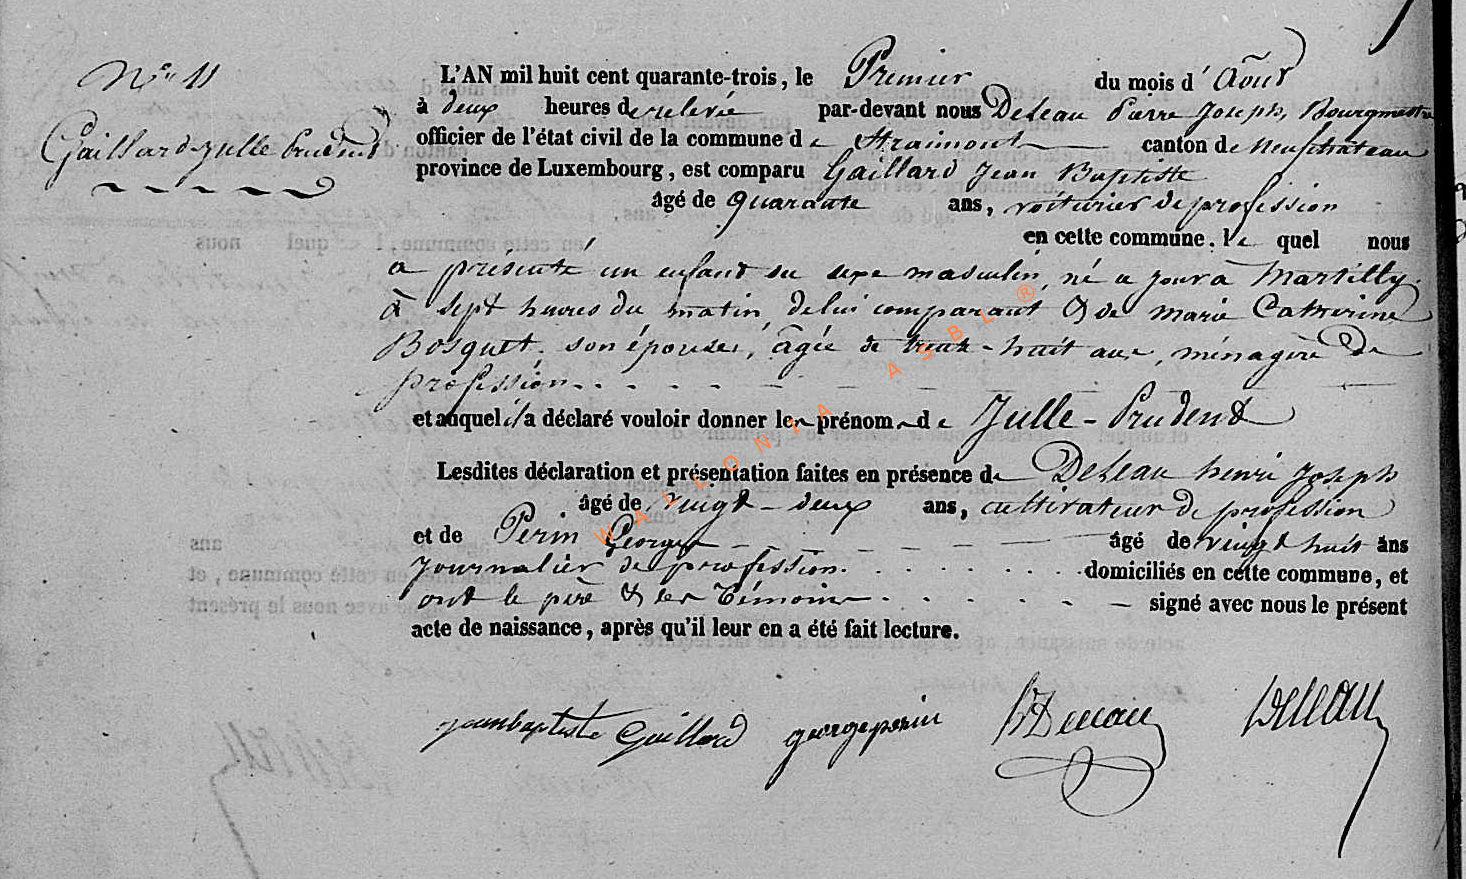 N° 11
Gaillard Julle Prudent
L'AN mil huit cent quarante-trois, le Premier du mois d'Août
à deux heures de relevée par-devant nous Deleau Pierre Joseph, Bourgmestre
officier de l'état civil de la commune de Straimont canton de Neufchateau
province de Luxembourg, est comparu Gaillard Jean Baptiste
âgé de quarante ans, voiturier de profession
en cette commune. le quel nous
a présenté un enfant du sexe masculin, né a jour à Martilly
à sept heures du matin, de lui comparant & de Marie Catherine
Bosquet. son épouse, âgée de trente-huit ans, ménagère de
profession
et auquel il a déclaré vouloir donner les prénoms de Julle-Prudent
Lesdites déclaration et présentation faites en présence de Deleau henri Joseph
âgé de vingt-deux ans, cultivateur de profession
et de Perin Georges âgé de vingt huit ans
Journalier de profession. domiciliés en cette commune, et
ont le père & les Témoins signé avec nous le présent
acte de naissance, après qu'il leur en a été fait lecture.
jeanbaptiste Gaillard georgeperin hJDeleau Deleau
WALLONIA ASBL ®